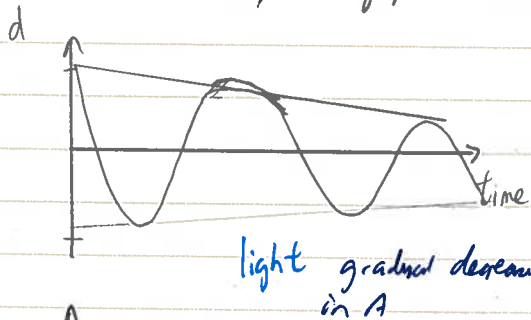 d
time
light gradual decrease
in A